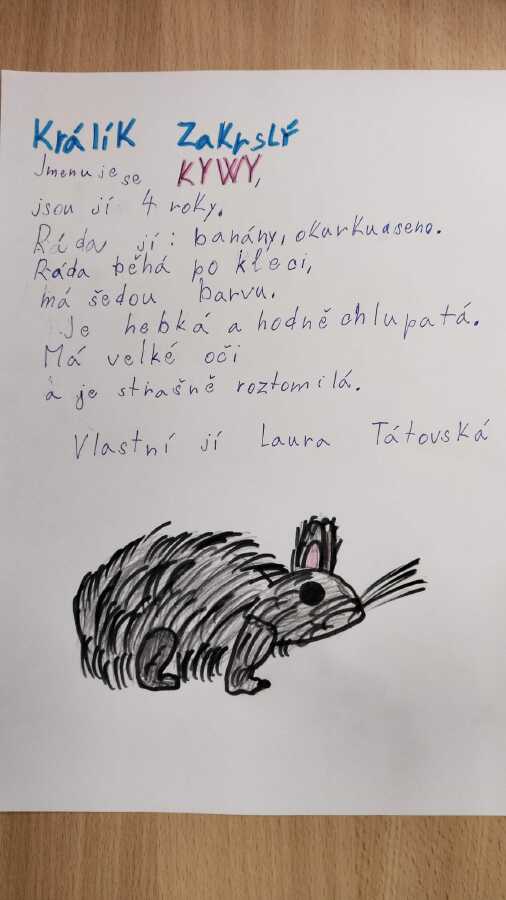 Králík Zakrslý
Jmenuje se KYWY,
jsou jí 4 roky.
Ráda jí: banány, okurku a seno.
Ráda běhá po kleci,
má šedou barvu.
Je hebká a hodně chlupatá.
Má velké oči
a je strašně roztomilá.
Vlastní jí Laura Tátovská